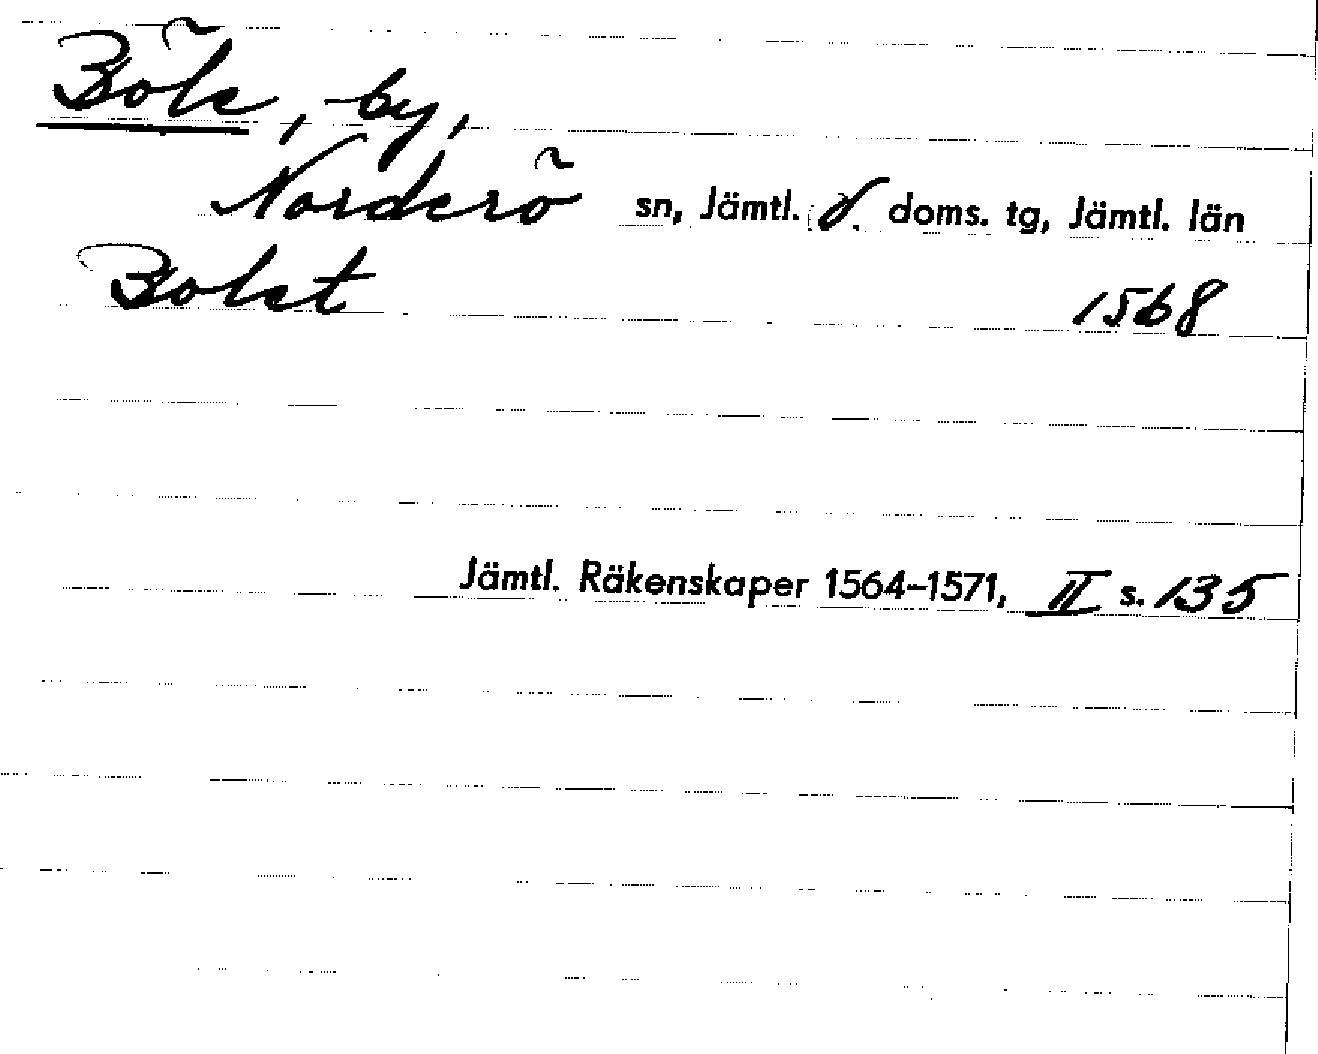 Böle, by,
Norderö sn, Jämtl. v. doms. tg, Jämtl. län
Bolet 1568
Jämtl. Räkenskaper 1564–1571, II s. 135